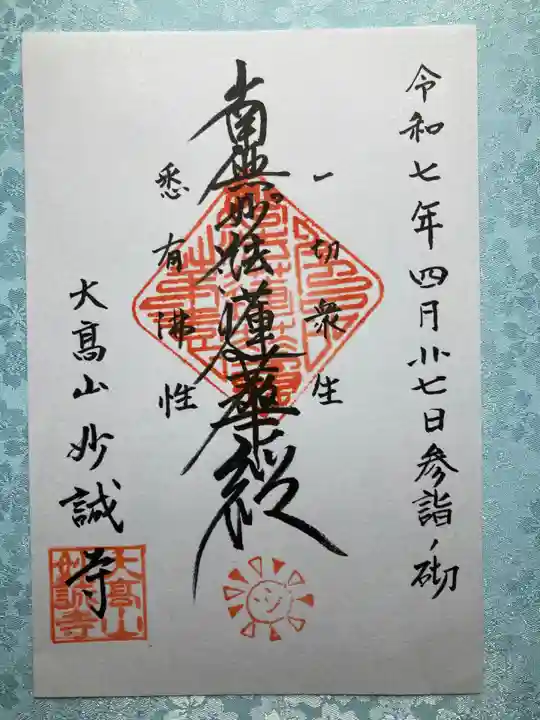 令和七年四月廿七日参詣ノ砌
一切衆生
南無妙法蓮華経
悉有佛性
大髙山妙誠寺
大髙山
妙誠寺